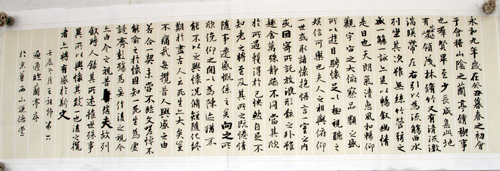 永和九年歲在癸丑暮春之初會
于會稽山陰之蘭亭修禊事
也群賢畢至少長咸集此地
有峻領茂林修竹又有清流激
湍暎帶左右引以為流觴曲水
列坐其次雖無絲竹管弦之
盛一觴一詠亦足以暢敘幽情
是日也天朗氣清惠風和暢仰
觀宇宙之大俯察品類之盛
所以遊目騁懷足以極視聽之
娛信可樂也夫人之相與俯仰
一世或取諸懷抱悟言一室之內
或因寄所託放浪形骸之外雖
趣舍萬殊靜躁不同當其欣
於所遇暫得於己快然自足不
知老之將至及其所之既惓情
隨事遷感慨係之矣向之所
欣俛仰之間以為陳迹猶不
能不以之興懷況脩短隨化終
期於盡古人云死生亦大矣豈
不痛哉每攬昔人興感之由
若合一契未嘗不臨文嗟悼不
能喻之於懷固知一死生為虛
誕齊彭殤為妄作後之視今
亦由今之視昔悲夫故列
敘時人錄其所述雖世殊事
異所以興懷其致一也後之攬
者亦將有感於斯文
壬辰年第六
通臨蘭亭序
於京華西山德堂